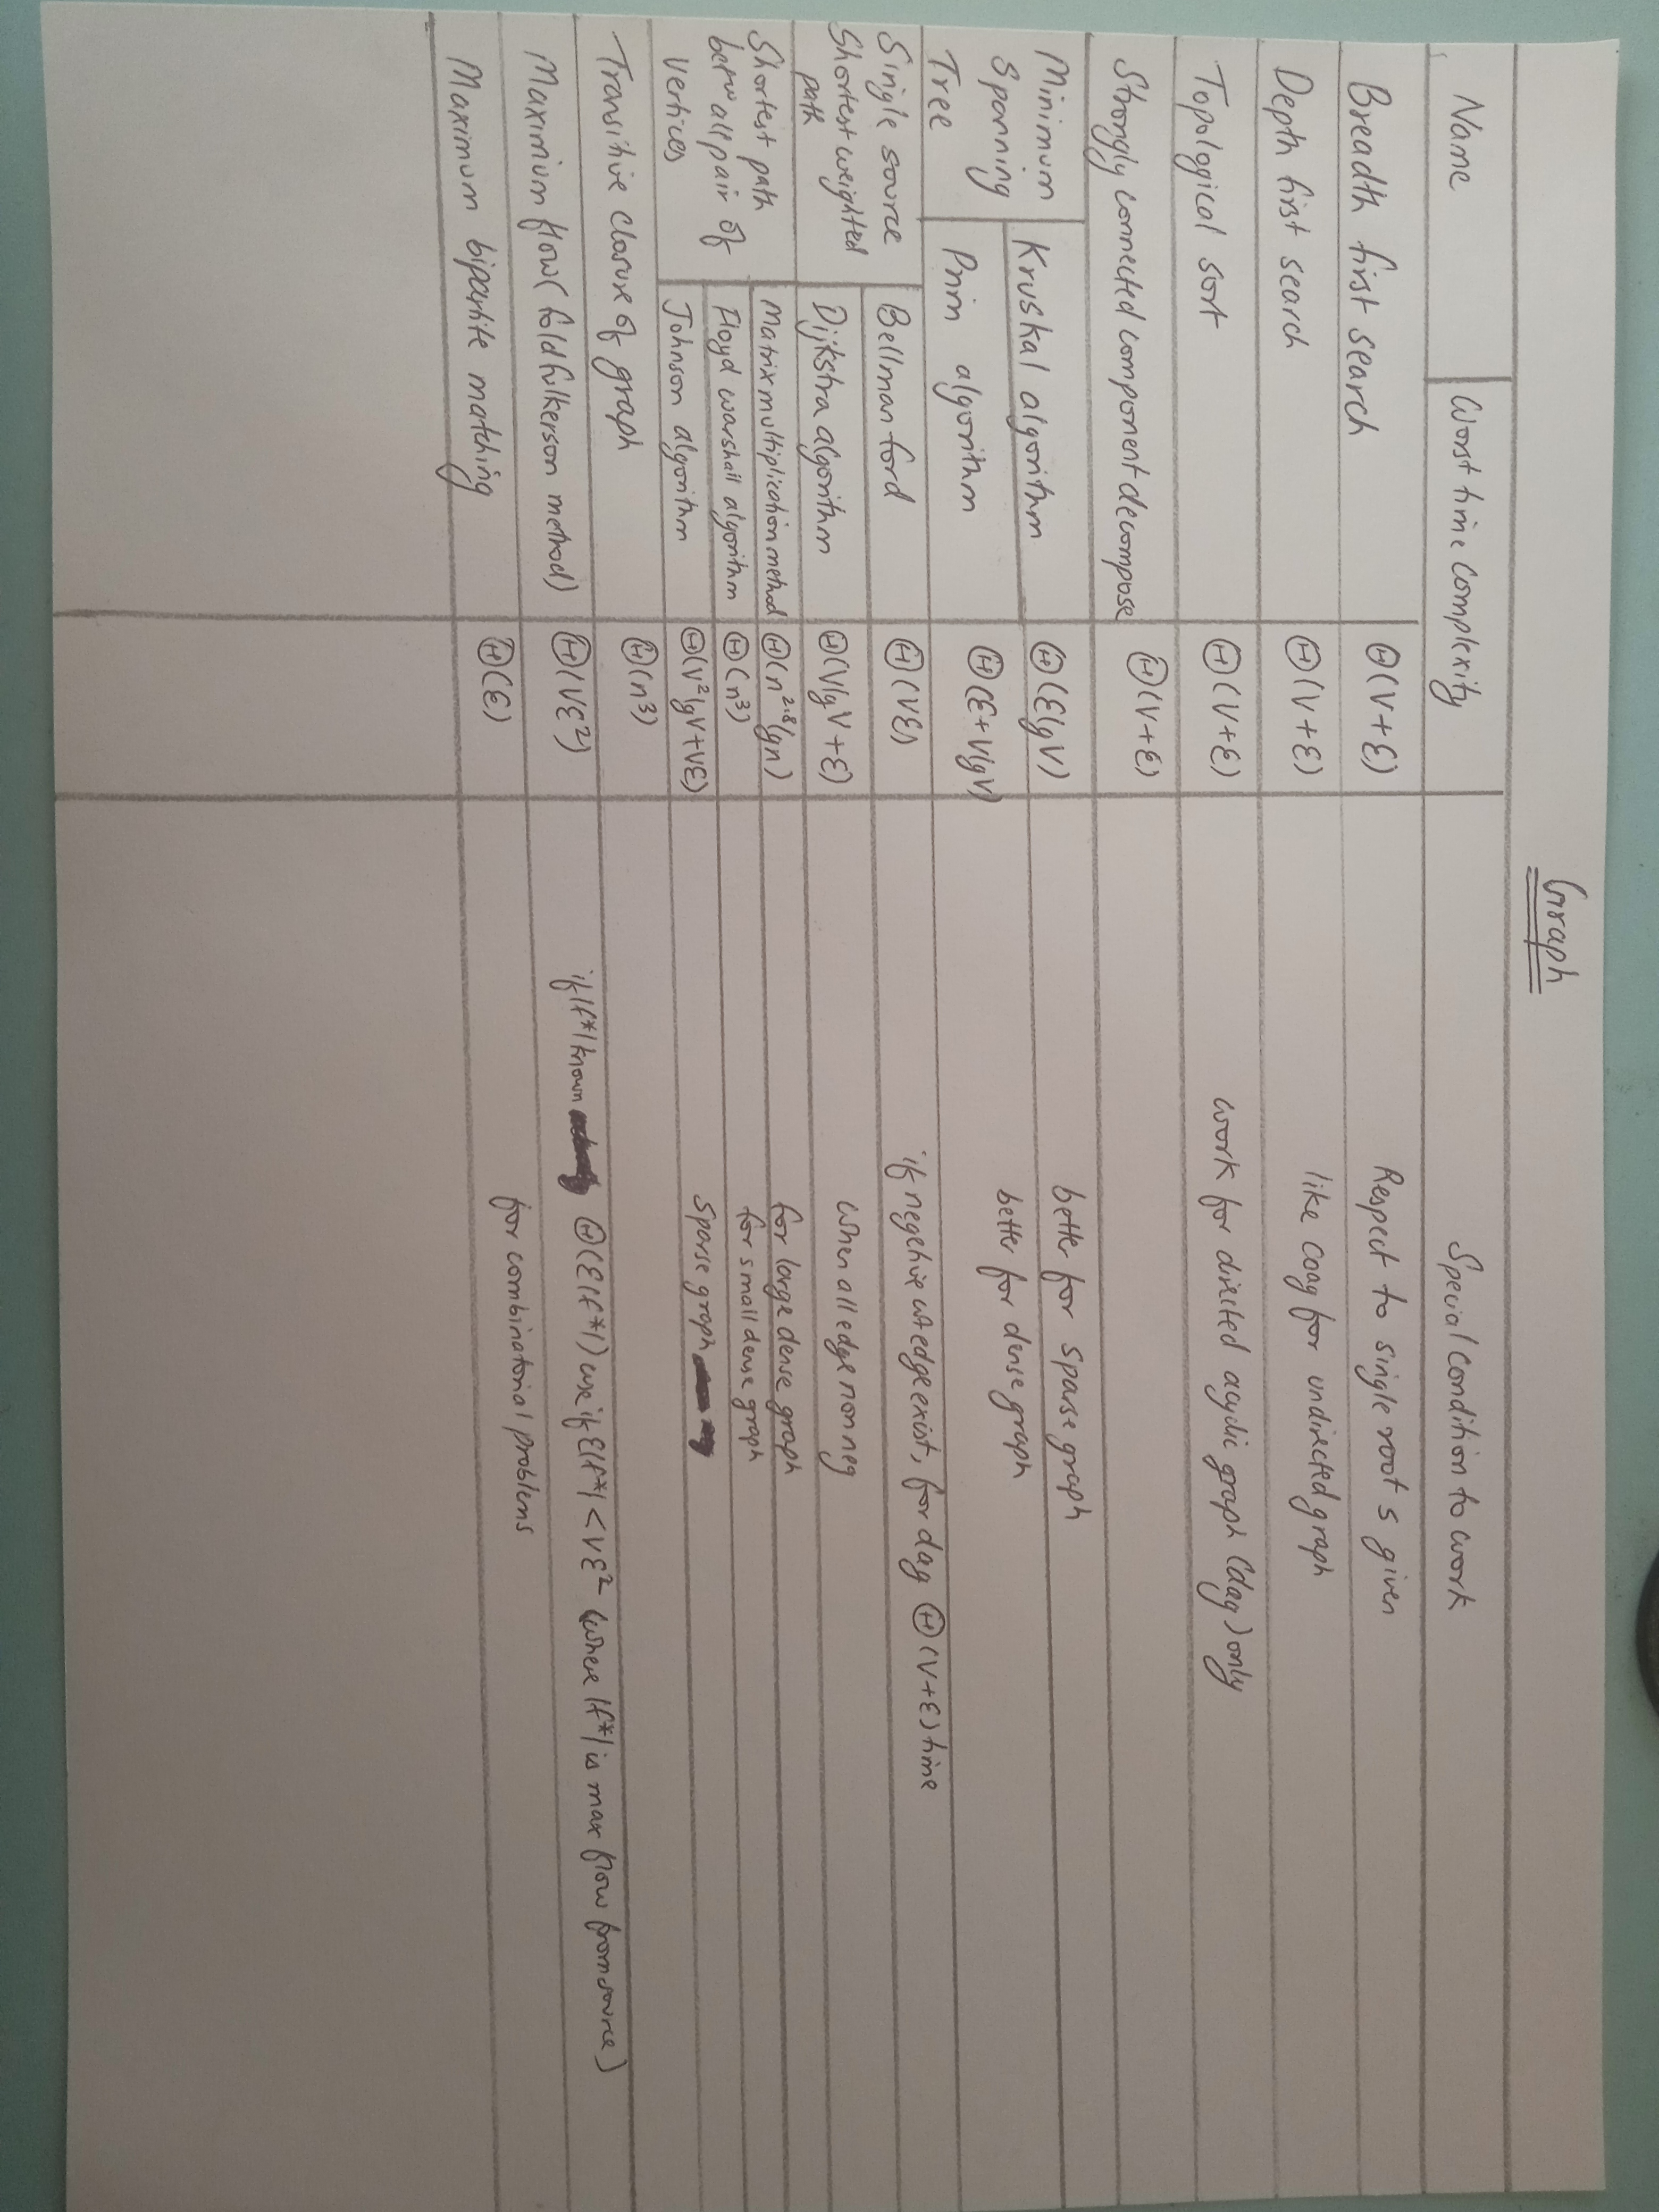 Graph
Name Worst time complexity Special Condition to work
Breadth first search Θ(V+E) Respect to single root s given
Depth first search Θ(V+E) like for undirected graph
Topological sort Θ(V+E) work for directed acyclic graph (dag) only
Strongly connected component decompose Θ(V+E)
Minimum Spanning Tree
Kruskal algorithm Θ(ElgV) better for sparse graph
Prim algorithm Θ(E+VlgV) better for dense graph
Single source Shortest weighted path
Bellman ford Θ(VE) if negetive wt edge exist, for dag Θ(V+E) time
Dijkstra algorithm Θ(VlgV+E) When all edge non neg
Shortest path betⁿ all pair of vertices
Matrix multiplication method Θ(n^2.8 lgn) for large dense graph
Floyd warshall algorithm Θ(n³) for small dense graph
Johnson algorithm Θ(V²lgV+VE) Sparse graph
Transitive closure of graph Θ(n³)
Maximum flow (fold fulkerson method) Θ(VE²) if |f*| known Θ(E|f*|) use if E|f*| < VE² (where |f*| is max flow from source)
Maximum bipartite matching Θ(E) for combinatorial problems